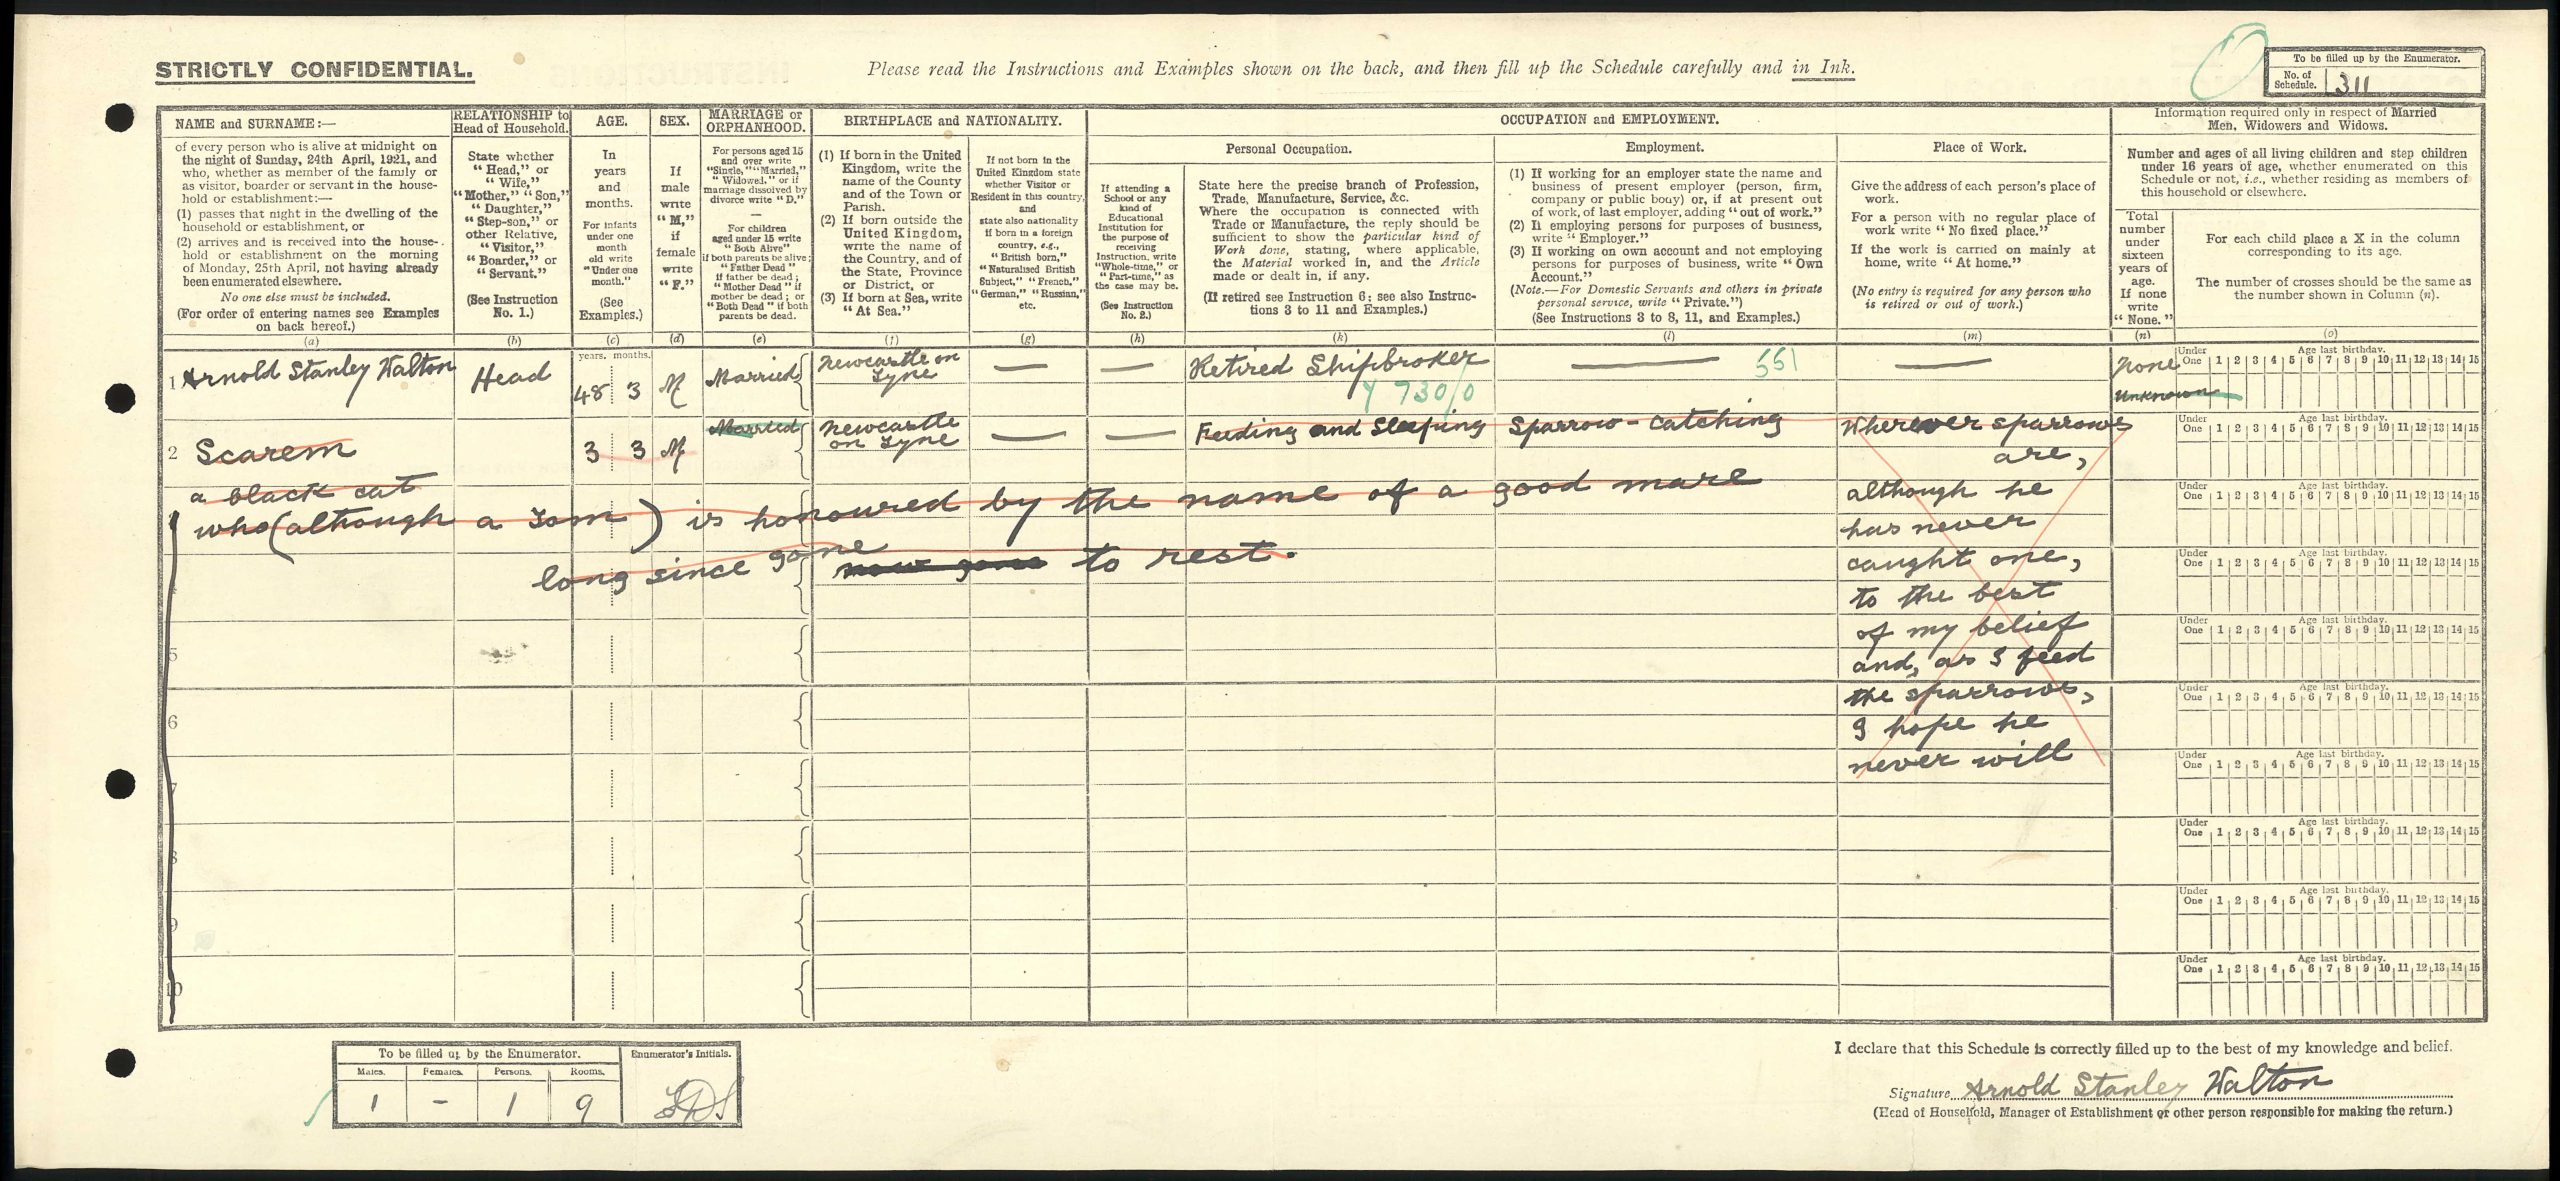 STRICTLY CONFIDENTIAL.
Please read the Instructions and Examples shown on the back, and then fill up the Schedule carefully and in Ink.
To be filled up by the Enumerator.
No. of Schedule. 311
NAME and SURNAME:—
of every person who is alive at midnight on
the night of Sunday, 24th April, 1921, and
who, whether as member of the family or
as visitor, boarder or servant in the house-
hold or establishment:—
(1) passes that night in the dwelling of the
household or establishment, or
(2) arrives and is received into the house-
hold or establishment on the morning
of Monday, 25th April, not having already
been enumerated elsewhere.
No one else must be included.
(For order of entering names see Examples
on back hereof.)
(a)
RELATIONSHIP to
Head of Household.
State whether
"Head," or
"Wife,"
"Mother," "Son,"
"Daughter,"
"Step-son," or
other Relative,
"Visitor,"
"Boarder," or
"Servant."
(See Instruction
No. 1.)
(b)
AGE.
In
years
and
months.
For infants
under one
month
old write
"Under one
month."
(See
Examples.)
(c)
SEX.
If
male
write
"M,"
if
female
write
"F."
(d)
MARRIAGE or
ORPHANHOOD.
For persons aged 15
and over write
"Single," "Married,"
"Widowed," or if
marriage dissolved by
divorce write "D."
—
For children
aged under 15 write
"Both Alive"
if both parents be alive;
"Father Dead"
if father be dead;
"Mother Dead" if
mother be dead; or
"Both Dead" if both
parents be dead.
(e)
BIRTHPLACE and NATIONALITY.
(1) If born in the United
Kingdom, write the
name of the County
and of the Town or
Parish.
(2) If born outside the
United Kingdom,
write the name of
the Country, and of
the State, Province
or District, or
(3) If born at Sea, write
"At Sea."
(f)
If not born in the
United Kingdom state
whether Visitor or
Resident in this country,
and
state also nationality
if born in a foreign
country, e.g.,
"British born,"
"Naturalised British
Subject," "French,"
"German," "Russian,"
etc.
(g)
OCCUPATION and EMPLOYMENT.
Personal Occupation.
If attending a
School or any
kind of
Educational
Institution for
the purpose of
receiving
Instruction, write
"Whole-time," or
"Part-time," as
the case may be.
(See Instruction
No. 2.)
(h)
State here the precise branch of Profession,
Trade, Manufacture, Service, &c.
Where the occupation is connected with
Trade or Manufacture, the reply should be
sufficient to show the particular kind of
Work done, stating, where applicable,
the Material worked in, and the Article
made or dealt in, if any.
(If retired see Instruction 6; see also Instruc-
tions 3 to 11 and Examples.)
(k)
Employment.
(1) If working for an employer state the name and
business of present employer (person, firm,
company or public body) or, if at present out
of work, of last employer, adding "out of work."
(2) If employing persons for purposes of business,
write "Employer."
(3) If working on own account and not employing
persons for purposes of business, write "Own
Account."
(Note.—For Domestic Servants and others in private
personal service, write "Private.")
(See Instructions 3 to 8, 11, and Examples.)
(l)
Place of Work.
Give the address of each person's place of
work.
For a person with no regular place of
work write "No fixed place."
If the work is carried on mainly at
home, write "At home."
(No entry is required for any person who
is retired or out of work.)
(m)
Information required only in respect of Married
Men, Widowers and Widows.
Number and ages of all living children and step children
under 16 years of age, whether enumerated on this
Schedule or not, i.e., whether residing as members of
this household or elsewhere.
Total
number
under
sixteen
years of
age.
If none
write
"None."
(n)
For each child place a X in the column
corresponding to its age.
The number of crosses should be the same as
the number shown in Column (n).
(o)
years. months.
1 Arnold Stanley Walton Head 48 3 M Married Newcastle on Tyne — — Retired Shipbroker — 551 — None
Y 730/0
Unknown
Under One Age last birthday. 1 2 3 4 5 6 7 8 9 10 11 12 13 14 15
2 Scarem 3 3 M Married Newcastle on Tyne — — Feeding and Sleeping Sparrow-catching Wherever sparrows
are,
Under One Age last birthday. 1 2 3 4 5 6 7 8 9 10 11 12 13 14 15
a black cat
who (although a Tom) is honoured by the name of a good mare
long since gone now gone to rest.
although he
has never
caught one,
to the best
of my belief
and, as I feed
the sparrows,
I hope he
never will
Under One Age last birthday. 1 2 3 4 5 6 7 8 9 10 11 12 13 14 15
4
Under One Age last birthday. 1 2 3 4 5 6 7 8 9 10 11 12 13 14 15
5
Under One Age last birthday. 1 2 3 4 5 6 7 8 9 10 11 12 13 14 15
6
Under One Age last birthday. 1 2 3 4 5 6 7 8 9 10 11 12 13 14 15
7
Under One Age last birthday. 1 2 3 4 5 6 7 8 9 10 11 12 13 14 15
8
Under One Age last birthday. 1 2 3 4 5 6 7 8 9 10 11 12 13 14 15
9
Under One Age last birthday. 1 2 3 4 5 6 7 8 9 10 11 12 13 14 15
10
Under One Age last birthday. 1 2 3 4 5 6 7 8 9 10 11 12 13 14 15
To be filled up by the Enumerator.
Males. Females. Persons. Rooms.
1 - 1 9
Enumerator's Initials.
I declare that this Schedule is correctly filled up to the best of my knowledge and belief.
Signature Arnold Stanley Walton
(Head of Household, Manager of Establishment or other person responsible for making the return.)